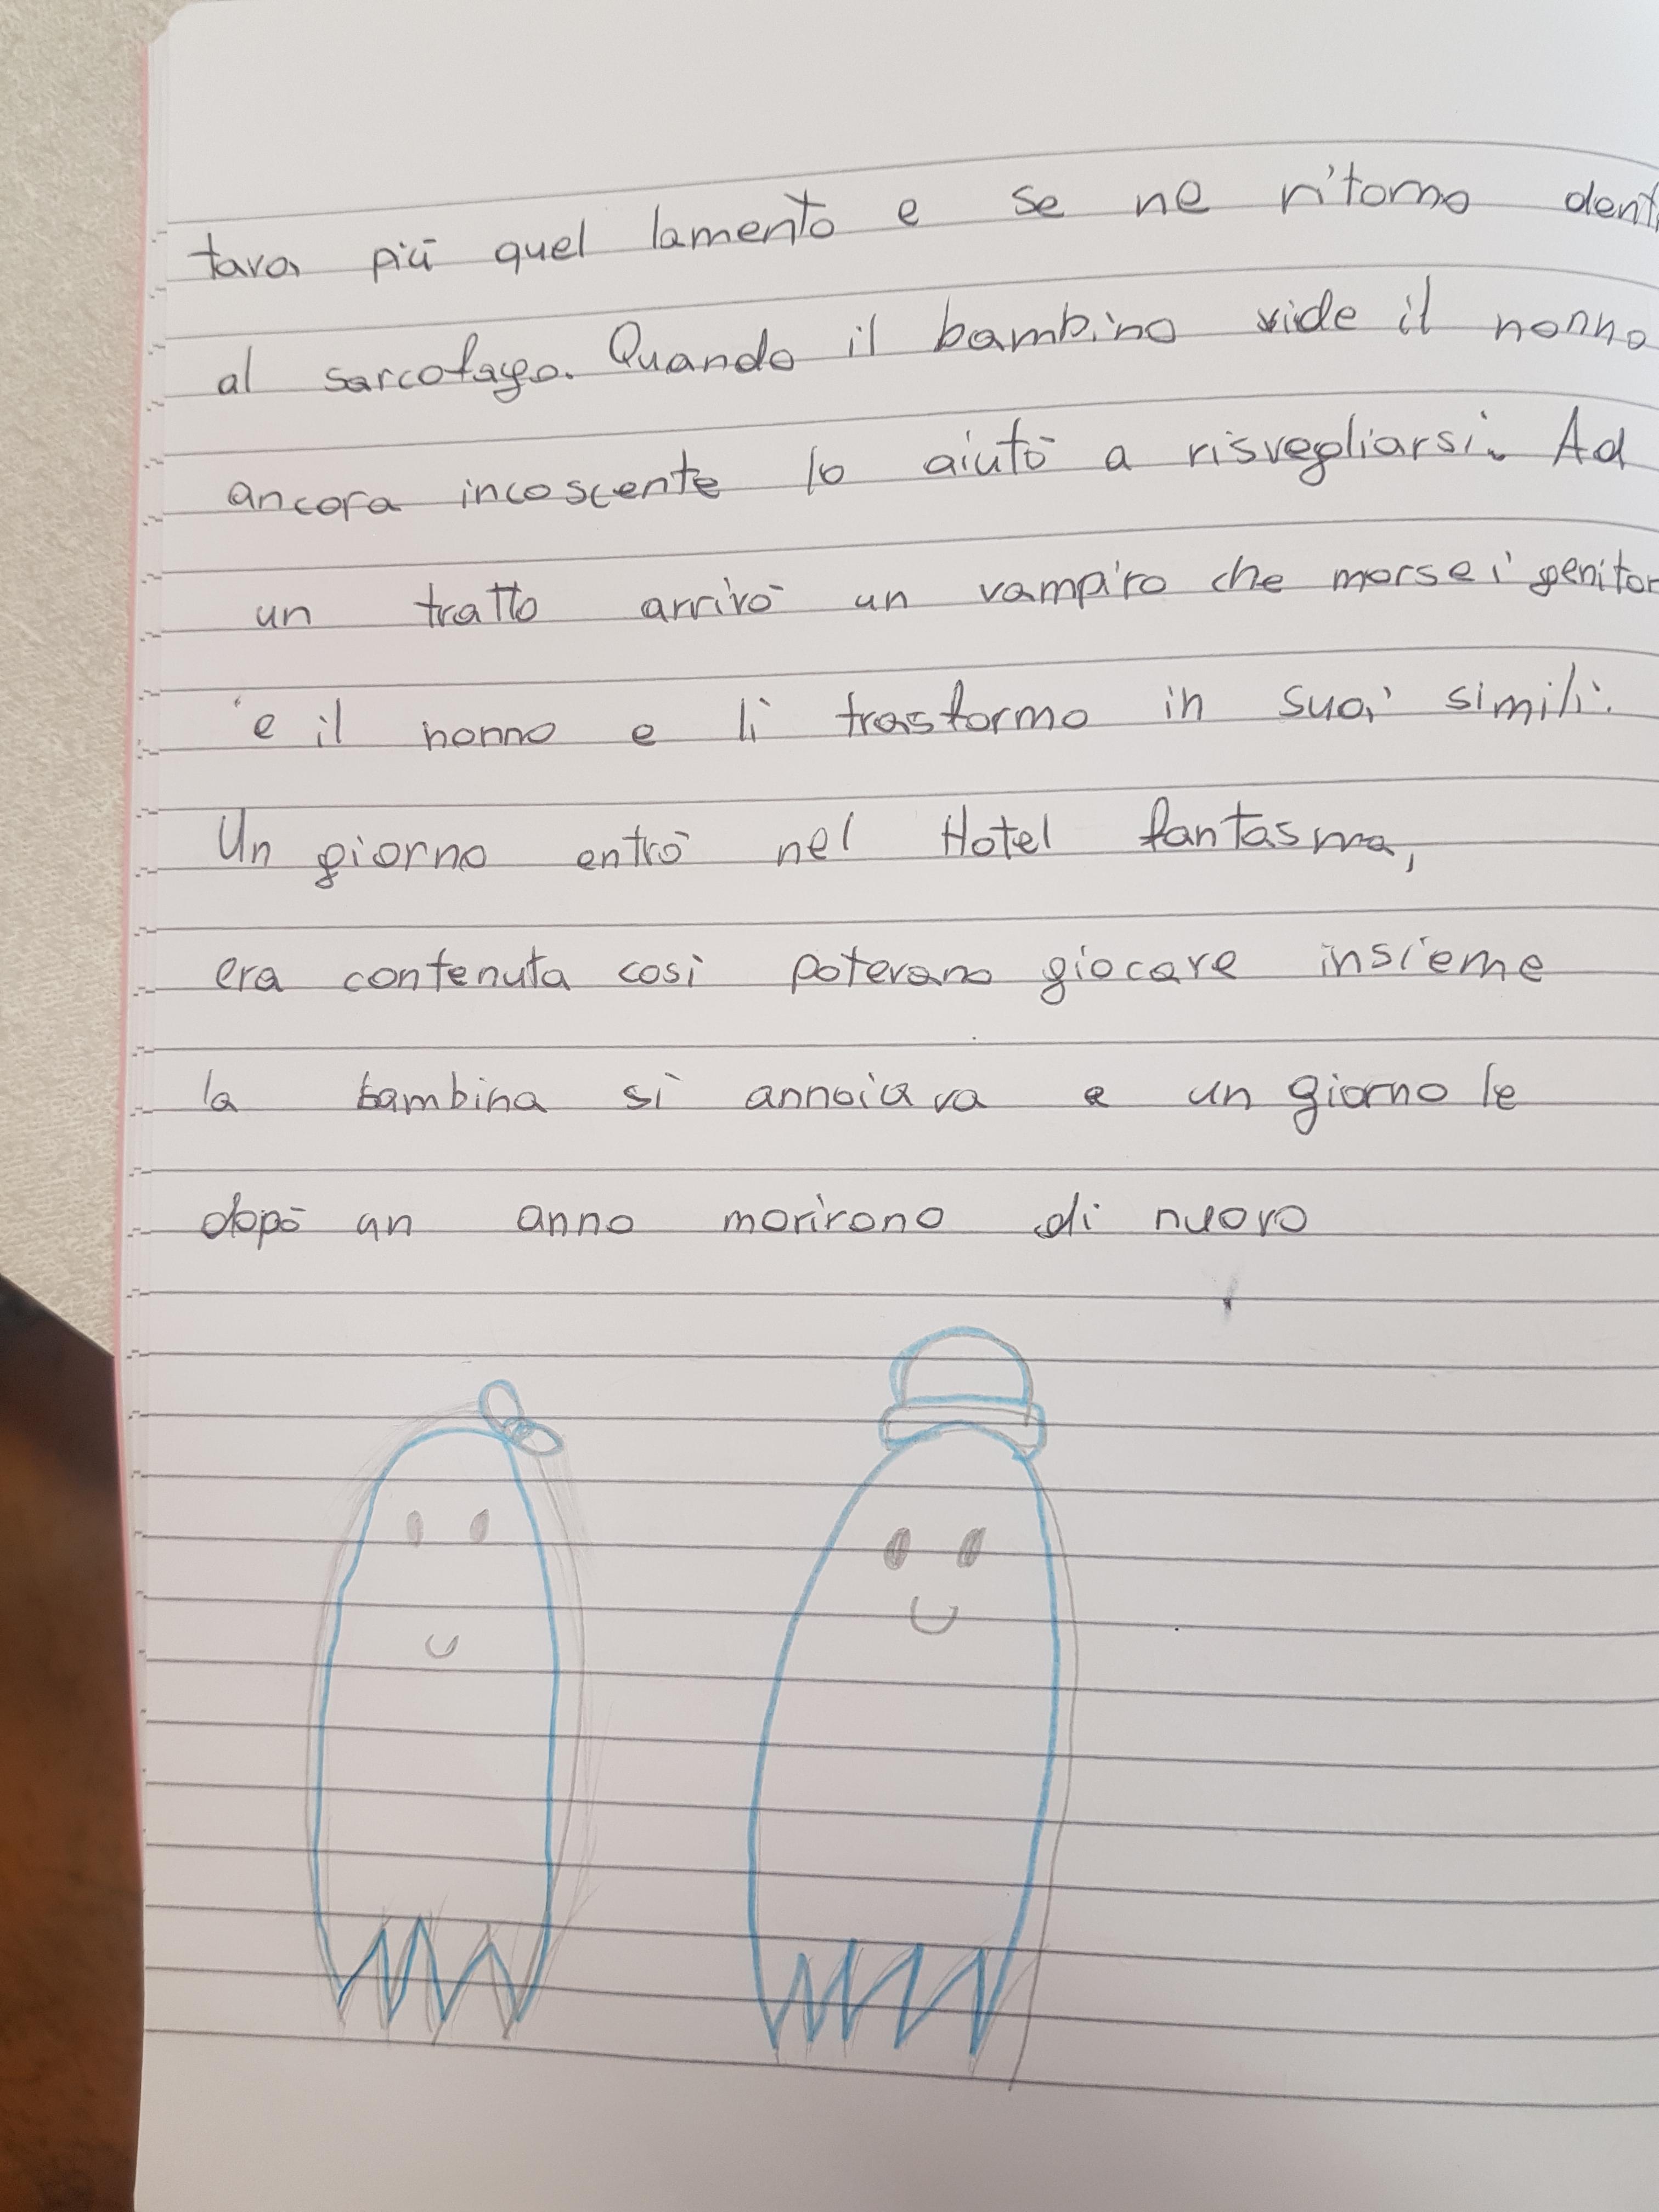 tava più quel lamento e se ne ritorno dent
al sarcofago. Quando il bambino vide il nonno
ancora incoscente lo aiutò a risvegliarsi. Ad
un tratto arrivò un vampiro che morse i genitor
e il nonno e li trasformo in suoi simili.
Un giorno entrò nel Hotel fantasma,
era contenuta cosi potevano giocare insieme
la bambina si annoiava e un giorno le
dopò un anno morirono di nuovo